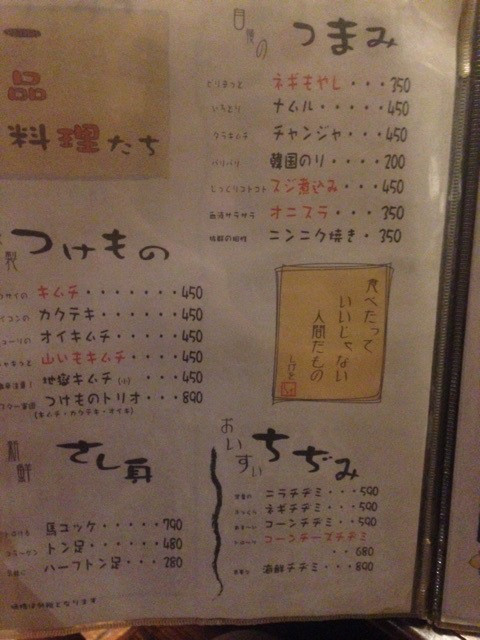 一
品
料理たち
つまみ
ネギもやし・・・350
ナムル・・・・・450
クラキムチ チャンジャ・・・450
パリパリ 韓国のり・・・・・200
じっくりコトコト スジ煮込み・・・450
血液サラサラ オニスラ・・・・350
ニンニク焼き・350
食べたって
いいじゃない
人間だもの
つけもの
キムチ・・・・・・・450
カクテキ・・・・・・450
オイキムチ・・・・・450
山いもキムチ・・・・450
地獄キムチ(小)・・・450
つけものトリオ・・・890
(キムチ・カクテキ・オイキ)
新鮮
さし身
馬ユッケ・・・・・790
トン足・・・・・・480
ハーフトン足・・・280
おいすぃ
ちぢみ
ニラチヂミ・・・590
ネギチヂミ・・・590
コーンチヂミ・・・590
コーンチーズチヂミ
・・680
海鮮チヂミ・・・890